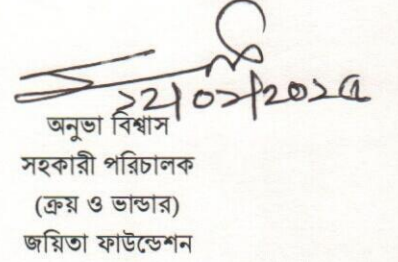 অনুভা বিশ্বাস
সহকারী পরিচালক
(ক্রয় ও ভান্ডার)
জয়িতা ফাউন্ডেশন